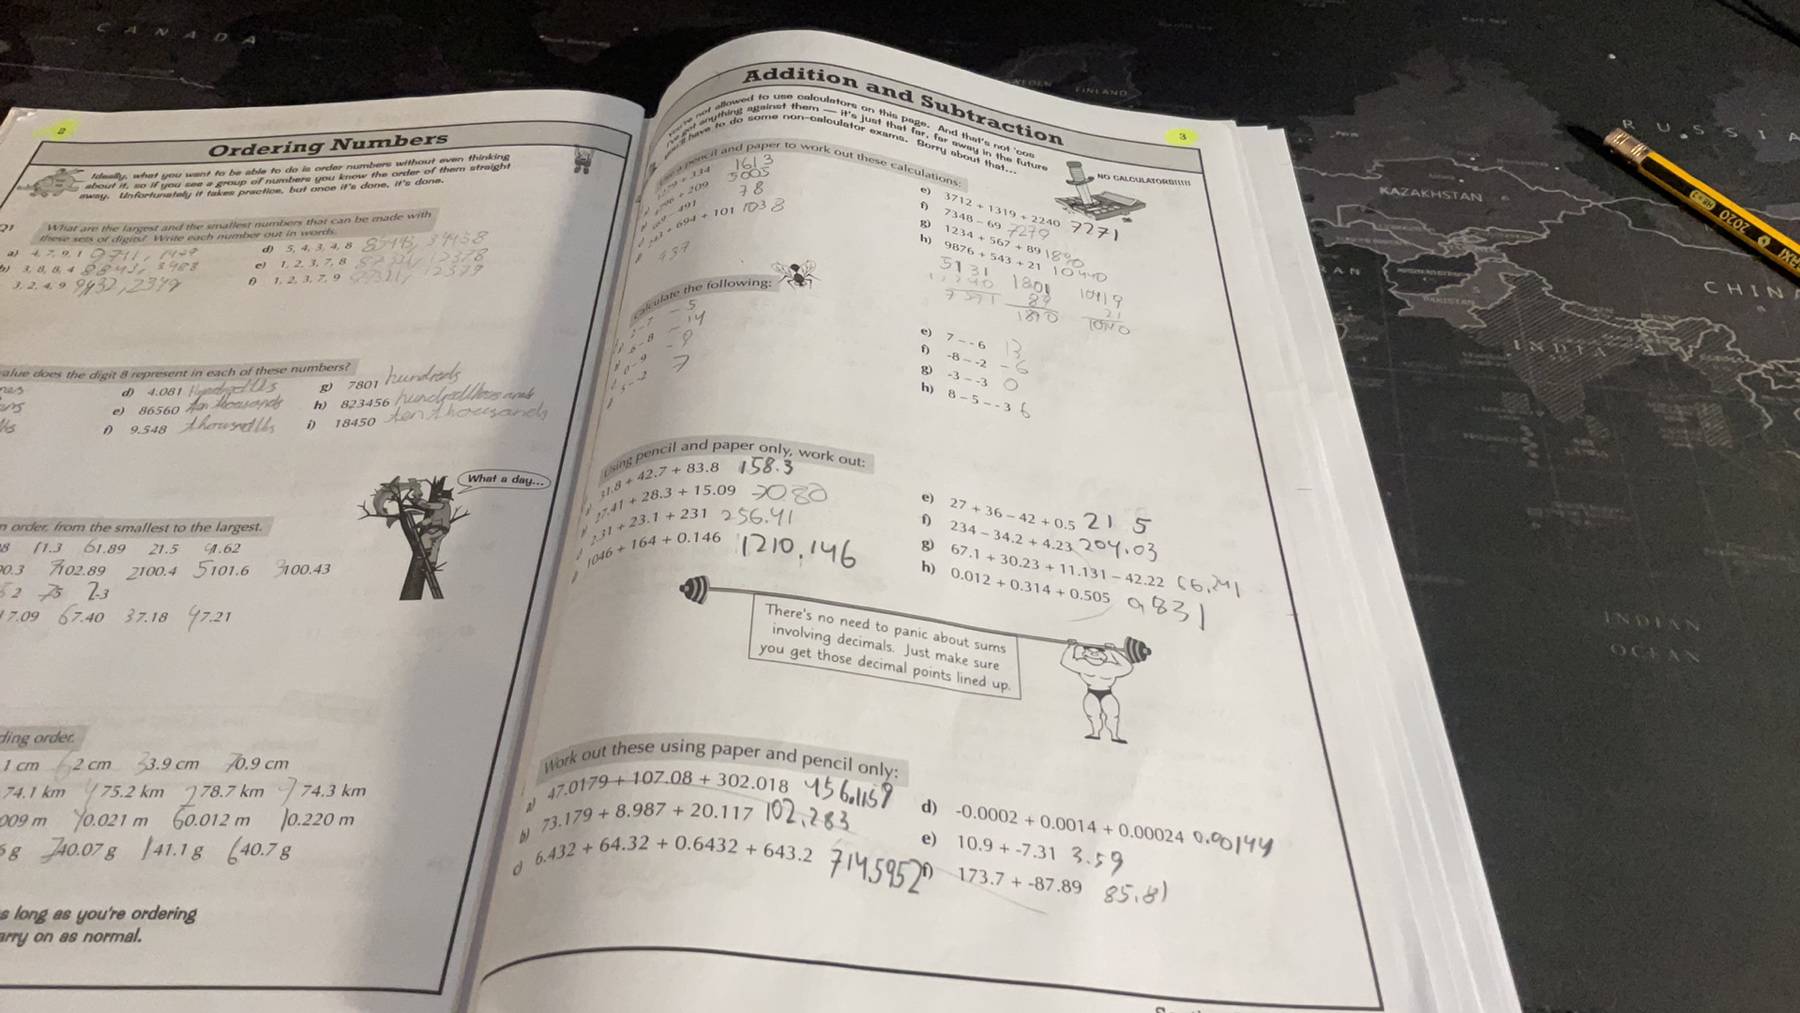 CANADA
RUSSIA
FINLAND
KAZAKHSTAN
CHIN
INDIA
INDIAN
OCEAN
HB
2020
2
Ordering Numbers
Ideally, what you want to be able to do is order numbers without even thinking
about it, so if you see a group of numbers you know the order of them straight
away. Unfortunately it takes practice, but once it's done, it's done.
Q1 What are the largest and the smallest numbers that can be made with
these sets of digits? Write each number out in words.
a) 4, 7, 9, 1 9741, 1479
3, 8, 8, 4 8843, 3488
3, 2, 4, 9 9432, 2349
d) 5, 4, 3, 4, 8 34458
e) 1, 2, 3, 7, 8 12378
f) 1, 2, 3, 7, 9 12379
alue does the digit 8 represent in each of these numbers?
d) 4.081 hundredths
e) 86560 ten thousands
f) 9.548 thousandths
g) 7801 hundreds
h) 823456 hundred thousands
i) 18450 ten thousands
What a day...
n order, from the smallest to the largest.
8 11.3 61.89 21.5 .62
0.3 102.89 2100.4 5101.6 100.43
2 75 2.3
17.09 67.40 37.18 47.21
ding order.
1 cm 2 cm 3.9 cm 0.9 cm
74.1 km 75.2 km 78.7 km 74.3 km
009 m 0.021 m 0.012 m 0.220 m
g 40.07 g 41.1 g 40.7 g
s long as you're ordering
arry on as normal.
3
Addition and Subtraction
You're not allowed to use calculators on this page. And that's not 'cos
I've got anything against them — it's just that far, far away in the future
you'll have to do some non-calculator exams. Sorry about that...
NO CALCULATORS!!!!!
pencil and paper to work out these calculations:
1279 + 334 1613
+ 209 5005
- 491 78
243 + 694 + 101 1038
437
e) 3712 + 1319 + 2240 7271
f) 7348 - 69 7279
g) 1234 + 567 + 89 1890
h) 9876 + 543 + 21 10440
5131 1801 10419
89 21
1890 10440
Calculate the following:
2 - 7 - 5
-6 - 8 - 14
0 - 9 - 9
5 - -2 7
e) 7 - -6 13
f) -8 - -2 -6
g) -3 - -3 0
h) 8 - 5 - -3 6
Using pencil and paper only, work out:
31.8 + 42.7 + 83.8 158.3
27.41 + 28.3 + 15.09 7080
2.31 + 23.1 + 231 256.41
1046 + 164 + 0.146 1210.146
e) 27 + 36 - 42 + 0.5 21 5
f) 234 - 34.2 + 4.23 204.03
g) 67.1 + 30.23 + 11.131 - 42.22 66.241
h) 0.012 + 0.314 + 0.505 0831
There's no need to panic about sums
involving decimals. Just make sure
you get those decimal points lined up.
Work out these using paper and pencil only:
a) 47.0179 + 107.08 + 302.018 456.1159
b) 73.179 + 8.987 + 20.117 102.283
c) 6.432 + 64.32 + 0.6432 + 643.2 714.5952
d) -0.0002 + 0.0014 + 0.00024 0.00144
e) 10.9 + -7.31 3.59
f) 173.7 + -87.89 85.81